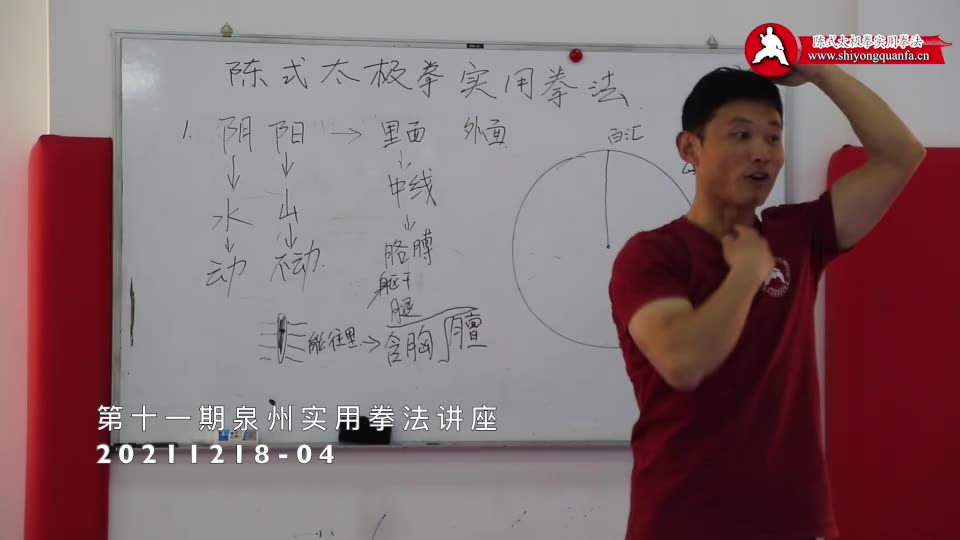 陈式太极拳实用拳法
www.shiyongquanfa.cn
陈式太极拳实用拳法
1. 阴阳→里面 外面
百汇
↓ ↓ ↓
中线
水 山
↓ ↓ ↓
胳膊
动 不动
躯干
腿
能往里→含胸
膻
第十一期泉州实用拳法讲座
20211218-04